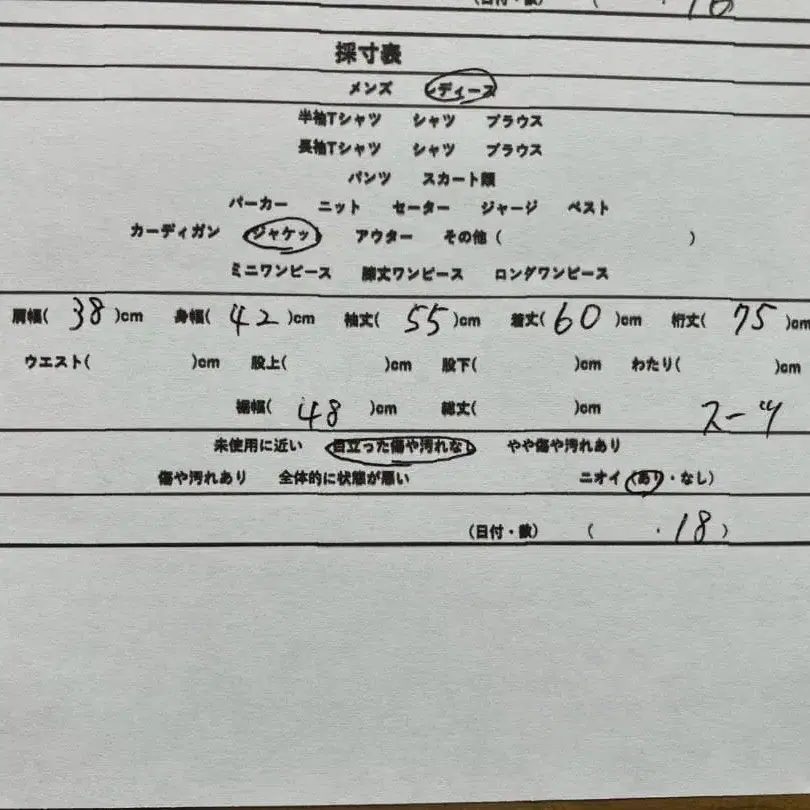 (日付・数) ( ・16
採寸表
メンズ レディース
半袖Tシャツ シャツ ブラウス
長袖Tシャツ シャツ ブラウス
パンツ スカート類
パーカー ニット セーター ジャージ ベスト
カーディガン ジャケット アウター その他( )
ミニワンピース 膝丈ワンピース ロングワンピース
肩幅( 38 )cm 身幅( 42 )cm 袖丈( 55 )cm 着丈( 60 )cm 裄丈( 75 )cm
ウエスト( )cm 股上( )cm 股下( )cm わたり( )cm
裾幅( 48 )cm 総丈( )cm スーツ
未使用に近い 目立った傷や汚れなし やや傷や汚れあり
傷や汚れあり 全体的に状態が悪い ニオイ(あり・なし)
(日付・数) ( ・18 )